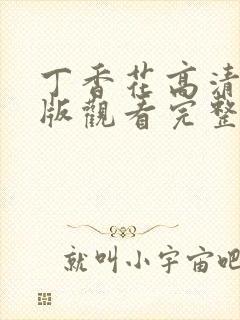 丁香花高清
版觀看完整
就叫小宇宙吧